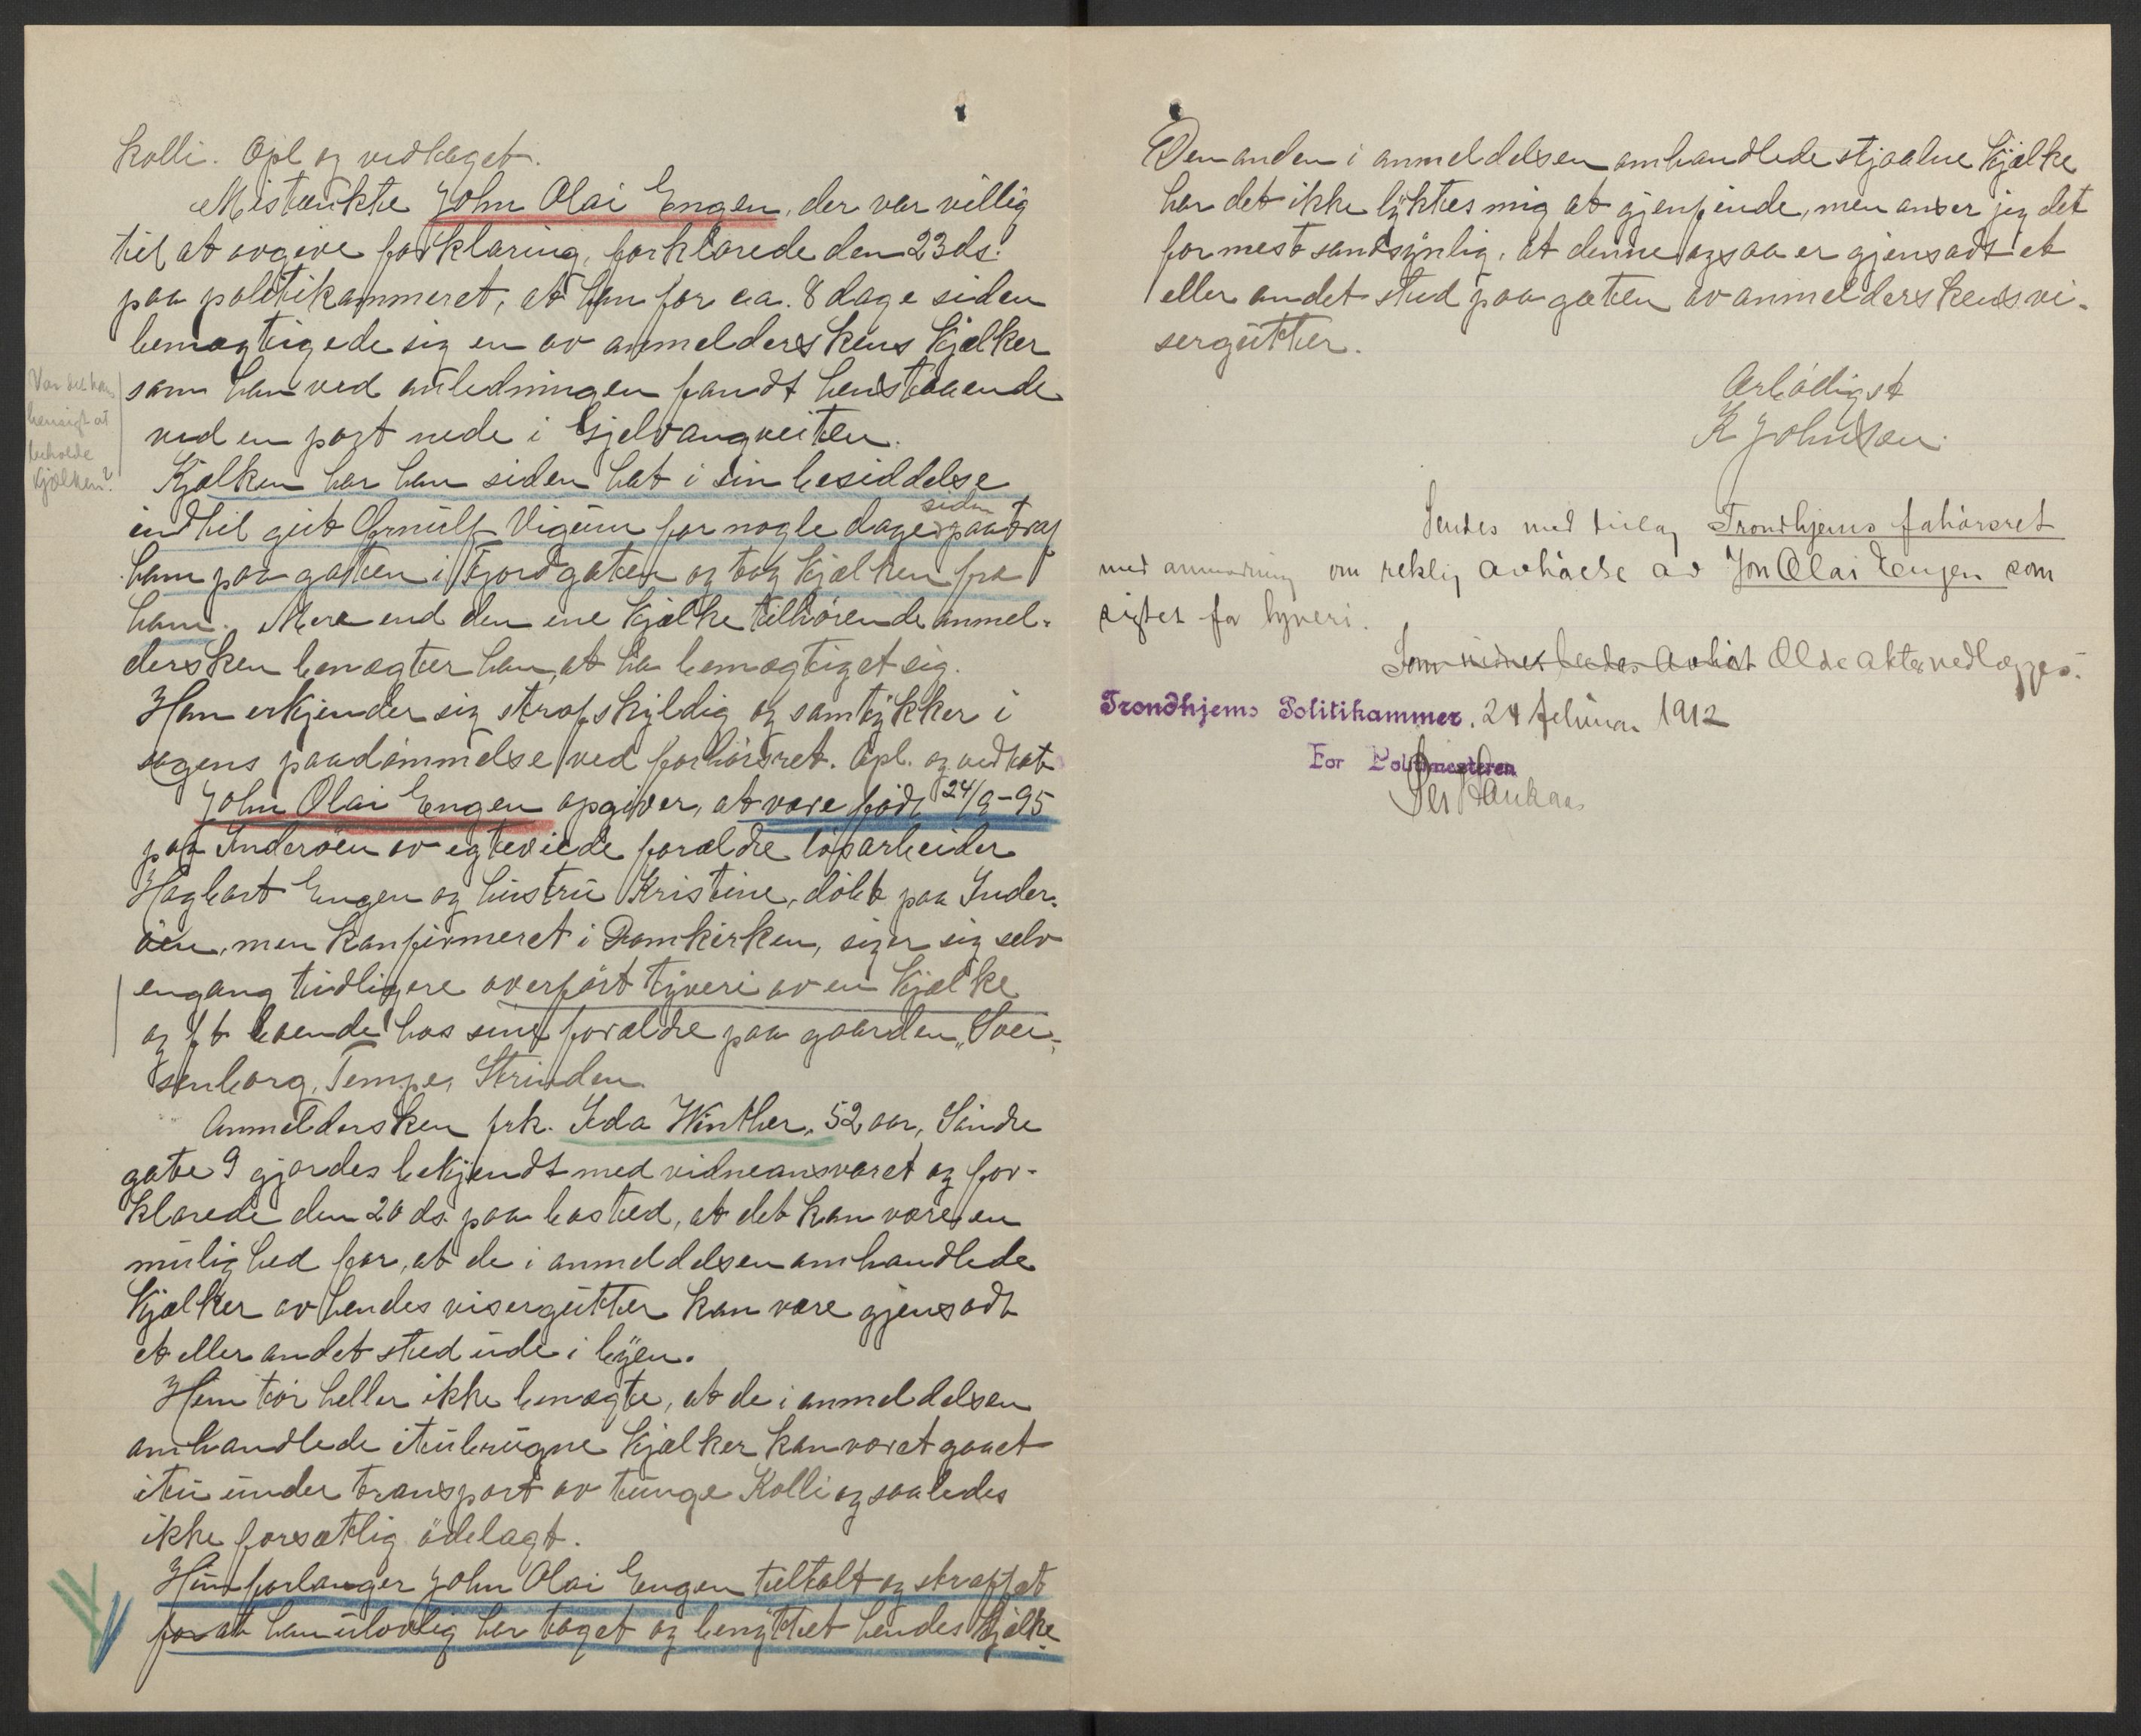 kolli. Opl og vedtaget.
Mistænkte John Olai Engen, der var villig
til at avgive forklaring, forklarede den 23 ds.
paa politikammeret, at han for ca. 8 dage siden
bemægtigede sig en av anmelderskens kjælker
som han ved anledningen fandt henstaaende
ved en port nede i Gjelvangveiten.
Var det hans
hensigt at
beholde
kjælken?
Kjælken har han siden hat i sin besiddelse
indtil gut Ørnulf Vigum for nogle dage siden paatraf
ham paa gaten i Fjordgaten og tog kjælken fra
ham. Mere end den ene kjælke tilhørende anmel-
dersken benægter han, at ha bemægtiget sig.
Han erkjender sig strafskyldig og samtykker i
sagens paadømmelse ved forhørsret. Opl. og vedtat
John Olai Engen opgiver, at være født 24/9-95
paa Inderøen av egteviede forældre løsarbeider
Hagbart Engen og hustru Kristine, døbt paa Inder-
øen, men konfirmeret i Domkirken, siger sig selv
engang tidligere overført tyveri av en kjælke
og ft boende hos sine forældre paa gaarden „Svei-
senborg, Tempe, Strinden
Anmeldersken frk. Ida Winther, 52 aar, Søndre
gate 9 gjordes bekjendt med vidneansvaret og for-
klarede den 20 ds. paa bosted, at det kan være en
mulighed for, at de i anmeldelsen omhandlede
kjælker av hendes visergutter kan være gjensadt
et eller andet sted ude i byen.
Hun tør heller ikke benægte, at de i anmeldelsen
omhandlede itubrugne kjælker kan været gaaet
itu under transport av tunge kolli og saaledes
ikke forsætlig ødelagt.
Hun forlanger John Olai Engen tiltalt og straffet
for at han ulovlig har taget og benyttet hendes kjælke.
Den anden i anmeldelsen omhandlede stjaalne kjælke
har det ikke lyktes mig at gjenfinde, men anser jeg det
for mest sandsynlig, at denne ogsaa er gjensadt et
eller andet sted paa gaten av anmelderskens vi-
sergutter.
Ærbødigst
K Johnsen.
Sendes med bilag Trondhjems forhørsret
med anmodning om retslig avhørelse av Jon Olai Engen som
sigtet for tyveri.
Som vidnes bedes avhørt Ælde akter vedlægges.
Trondhjems Politikammer, 24 februar 1912
For Politimesteren